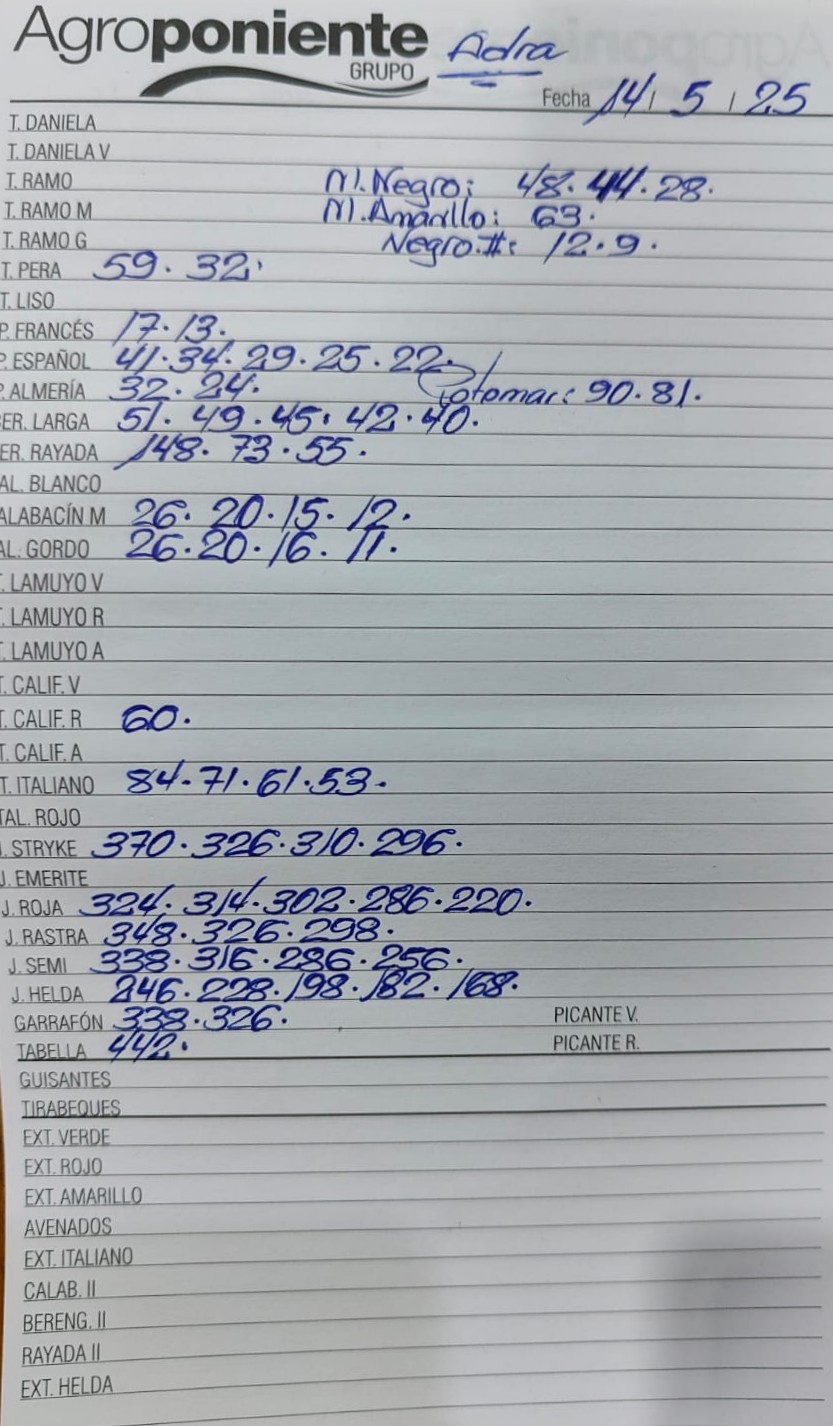 Agroponiente
GRUPO
Adra
Fecha 14 / 5 / 25
T. DANIELA
T. DANIELA V
T. RAMO M.Negro: 48. 44. 28.
T. RAMO M M.Amarillo: 63.
T. RAMO G Negro.#: 12.9.
T. PERA 59. 32.
T. LISO
P. FRANCÉS 17. 13.
P. ESPAÑOL 41. 34. 29. 25. 22.
P. ALMERÍA 32. 24. 90. 81.
BER. LARGA 51. 49. 45. 42. 40.
BER. RAYADA 148. 73. 55.
CAL. BLANCO
CALABACÍN M 26. 20. 15. 12.
CAL. GORDO 26. 20. 16. 11.
T. LAMUYO V
T. LAMUYO R
T. LAMUYO A
T. CALIF. V
T. CALIF. R 60.
T. CALIF. A
T. ITALIANO 84. 71. 61. 53.
ITAL. ROJO
J. STRYKE 370. 326. 310. 296.
J. EMERITE
J. ROJA 324. 314. 302. 286. 220.
J. RASTRA 348. 326. 298.
J. SEMI 338. 316. 286. 256.
J. HELDA 246. 228. 198. 182. 168.
GARRAFÓN 338. 326. PICANTE V.
TABELLA 442. PICANTE R.
GUISANTES
TIRABEQUES
EXT. VERDE
EXT. ROJO
EXT. AMARILLO
AVENADOS
EXT. ITALIANO
CALAB. II
BERENG. II
RAYADA II
EXT. HELDA